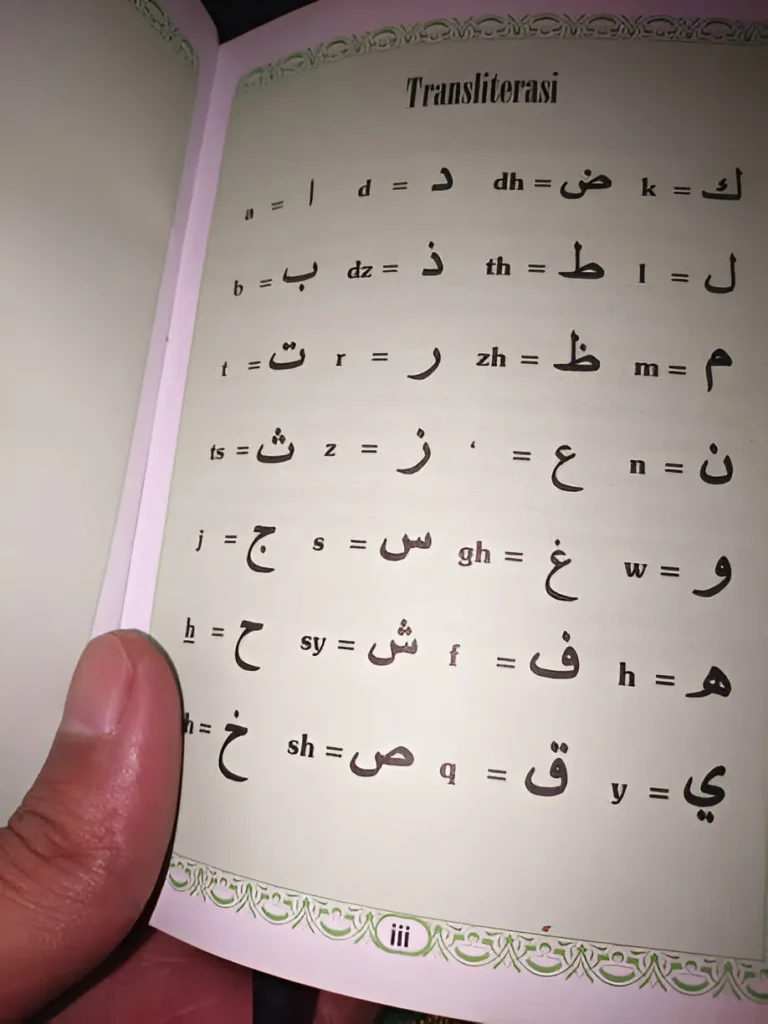 Transliterasi
a = ا d = د dh = ض k = ك
b = ب dz = ذ th = ط l = ل
t = ت r = ر zh = ظ m = م
ts = ث z = ز ‘ = ع n = ن
j = ج s = س gh = غ w = و
h̲ = ح sy = ش f = ف h = ه
h = خ sh = ص q = ق y = ي
iii